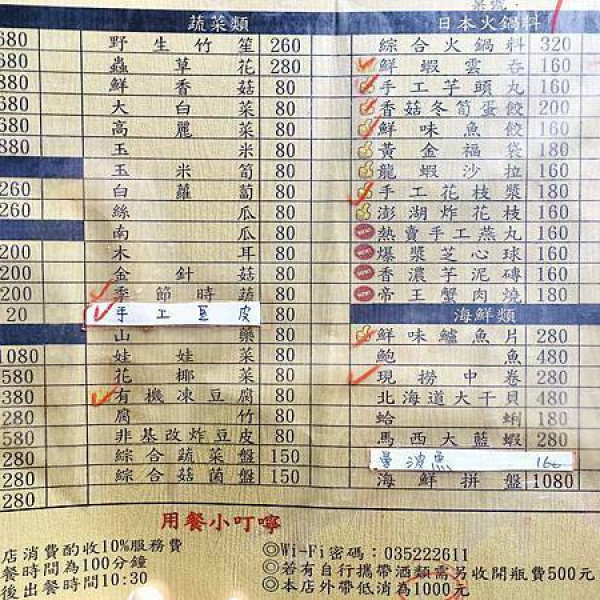 蔬菜類
野生竹笙 260
蟲草花 280
鮮香菇 80
大白菜 80
高麗菜 80
玉米 80
玉米筍 80
白蘿蔔 80
絲瓜 80
南瓜 80
木耳 80
金針菇 80
季節時蔬 80
手工豆皮 80
山藥 80
娃娃菜 80
花椰菜 80
有機凍豆腐 80
腐竹 80
非基改炸豆皮 80
綜合蔬菜盤 150
綜合菇菌盤 150
日本火鍋料
綜合火鍋料 320
鮮蝦雲吞 160
手工芋頭丸 160
香菇冬筍蛋餃 200
鮮味魚餃 160
黃金福袋 180
龍蝦沙拉 160
手工花枝漿 180
澎湖炸花枝 160
熱賣手工燕丸 160
爆漿芝心球 160
香濃芋泥磚 160
帝王蟹肉燒 180
海鮮類
鮮味鱸魚片 280
鮑魚 480
現撈中卷 280
北海道大干貝 480
蛤蜊 180
馬西大藍蝦 280
曼波魚 160
海鮮拼盤 1080
680
680
680
680
680
880
260
260
200
200
200
20
1080
580
380
280
580
280
280
280
用餐小叮嚀
店消費酌收10%服務費
餐時間為100分鐘
後出餐時間10:30
◎Wi-Fi密碼：035222611
◎若有自行攜帶酒類需另收開瓶費500元
◎本店外帶低消為1000元